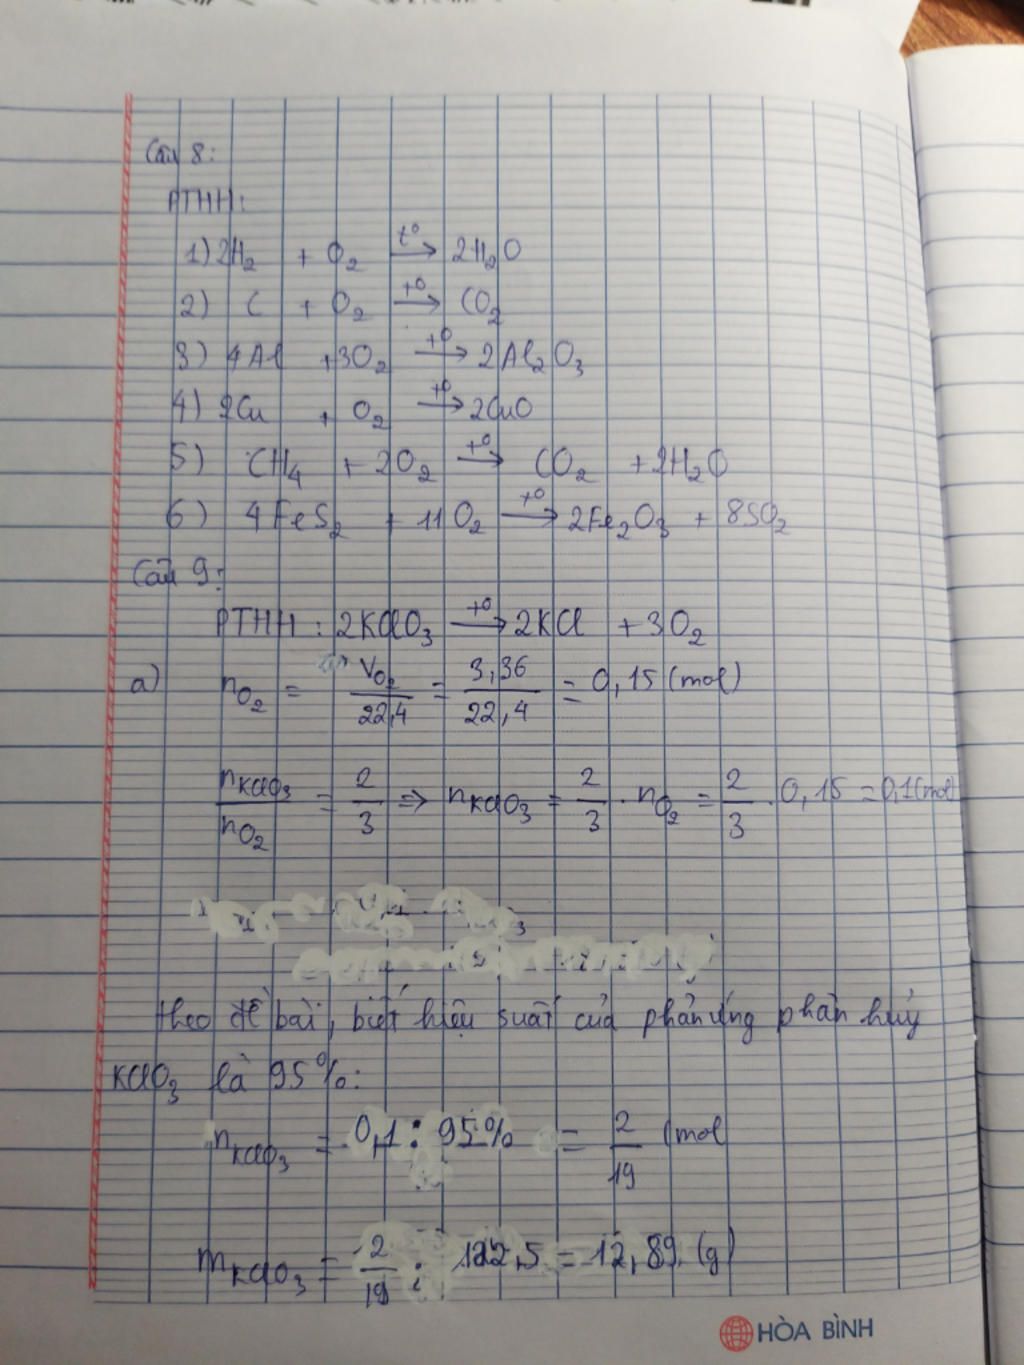 Câu 8:
PTHH:
1) 2H₂ + O₂ t⁰→ 2H₂O
2) C + O₂ t⁰→ CO₂
3) 4Al + 3O₂ t⁰→ 2Al₂O₃
4) 2Cu + O₂ t⁰→ 2CuO
5) CH₄ + 2O₂ t⁰→ CO₂ + 2H₂O
6) 4FeS₂ + 11O₂ t⁰→ 2Fe₂O₃ + 8SO₂
Câu 9:
PTHH: 2KClO₃ t⁰→ 2KCl + 3O₂
a) nO₂ = VO₂/22,4 = 3,36/22,4 = 0,15 (mol)
nKClO₃/nO₂ = 2/3 => nKClO₃ = 2/3 . nO₂ = 2/3 . 0,15 = 0,1 (mol)
theo đề bài, biết hiệu suất của phản ứng phân hủy
KClO₃ là 95%:
nKClO₃ = 0,1 : 95% = 2/19 (mol
mKClO₃ = 2/19 . 122,5 = 12,89 (g)
HÒA BÌNH